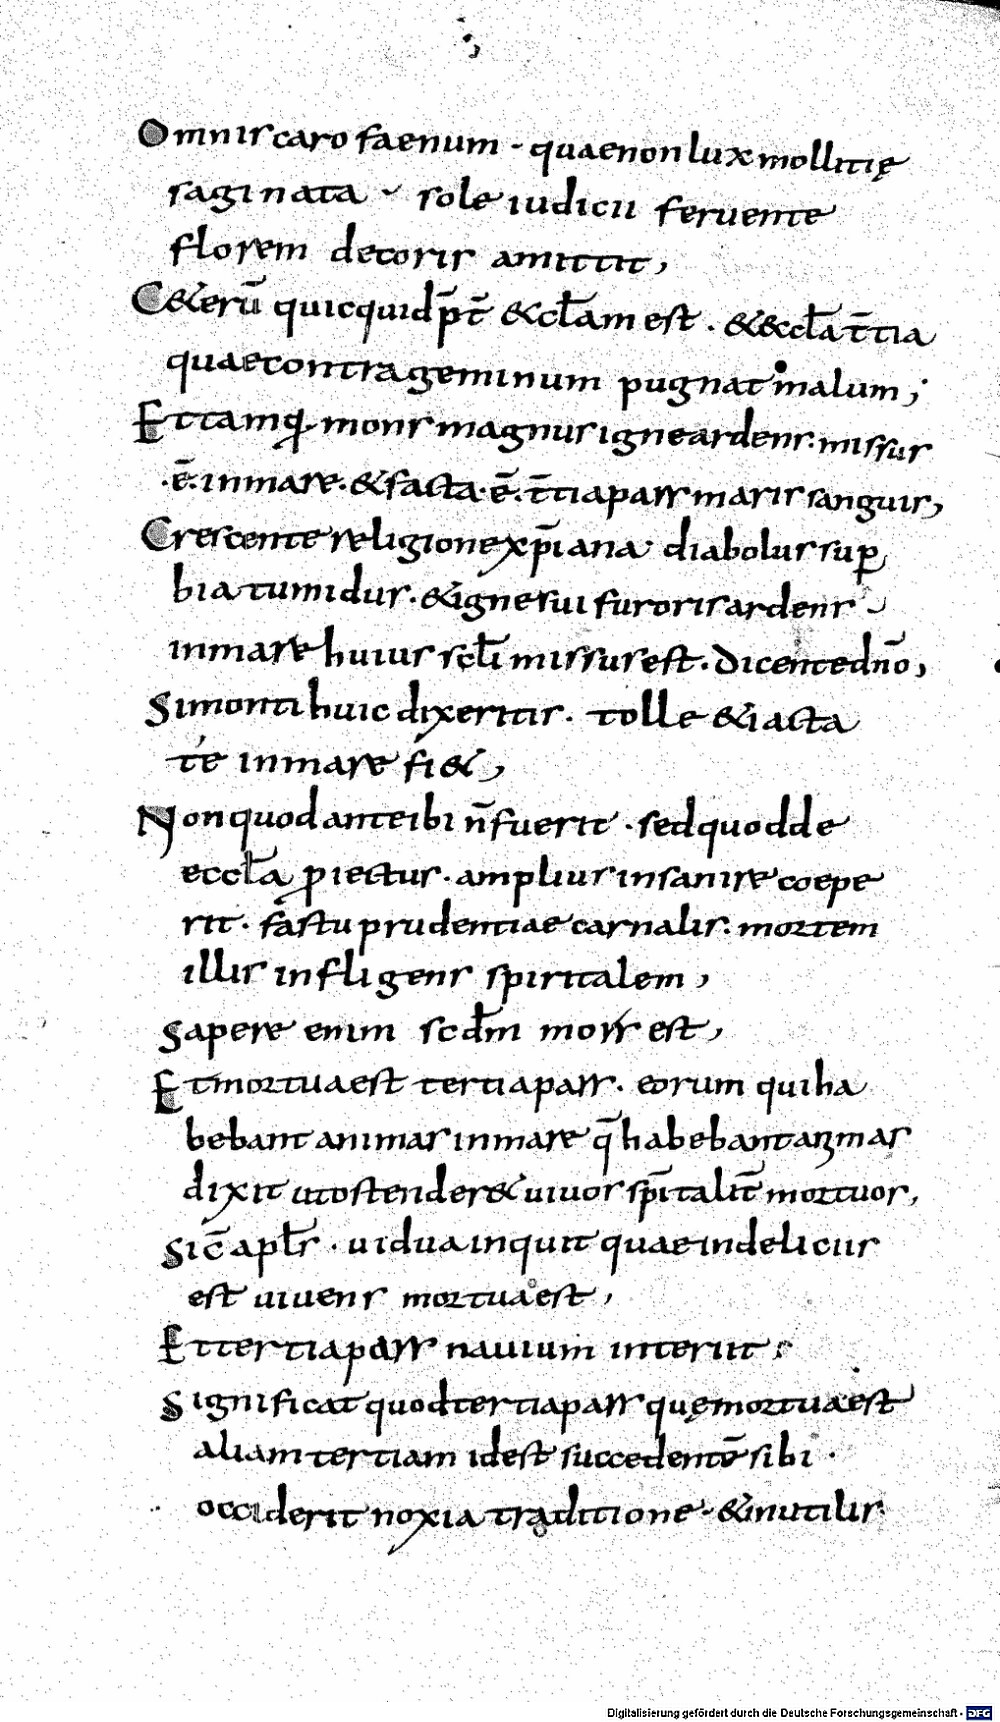 Omnis caro faenum · quae non luxu mollitię
saginata · sole iudicii feruente
florem decoris amittit,
C&erū quicquid p̄t̄ &ccl̄am est · & &ccl̄a t̄tia
quae contra geminum pugnat malum;
Et tamq· mons magnus igne ardens · missus
·ē· in mare · & facta ·ē· t̄tia pars maris sanguis,
Crescente religione xp̄iana diabolus suꝑ
bia tumidus · & igne sui furoris ardens
in mare huius scl̄i missus est · Dicente dn̄o,
Si monti huic dixeritis · tolle & iacta
te in mare fi&,
Non quod ante ibi n̄ fuerit · sed quod de
eccl̄a ꝓiectus · amplius insanire coepe
rit · fastu prudentiae carnalis · mortem
illis infligens spiritalem,
Sapere enim scdm̄ mors est,
Et mortua est tertia pars · eorum qui ha
bebant animas in mare q̄ habebant animas
dixit ut ostender& uiuos sp̄italit̄ mortuos,
Sic̄ apl̄s · uidua inquit quae in deliciis
est uiuens mortua est,
Et tertia pars nauium interiit;
Significat quod tertia pars quę mortua est
aliam tertiam id est succedentē sibi ·
occiderit noxia traditione · & inutilis
Digitalisierung gefördert durch die Deutsche Forschungsgemeinschaft - DFG